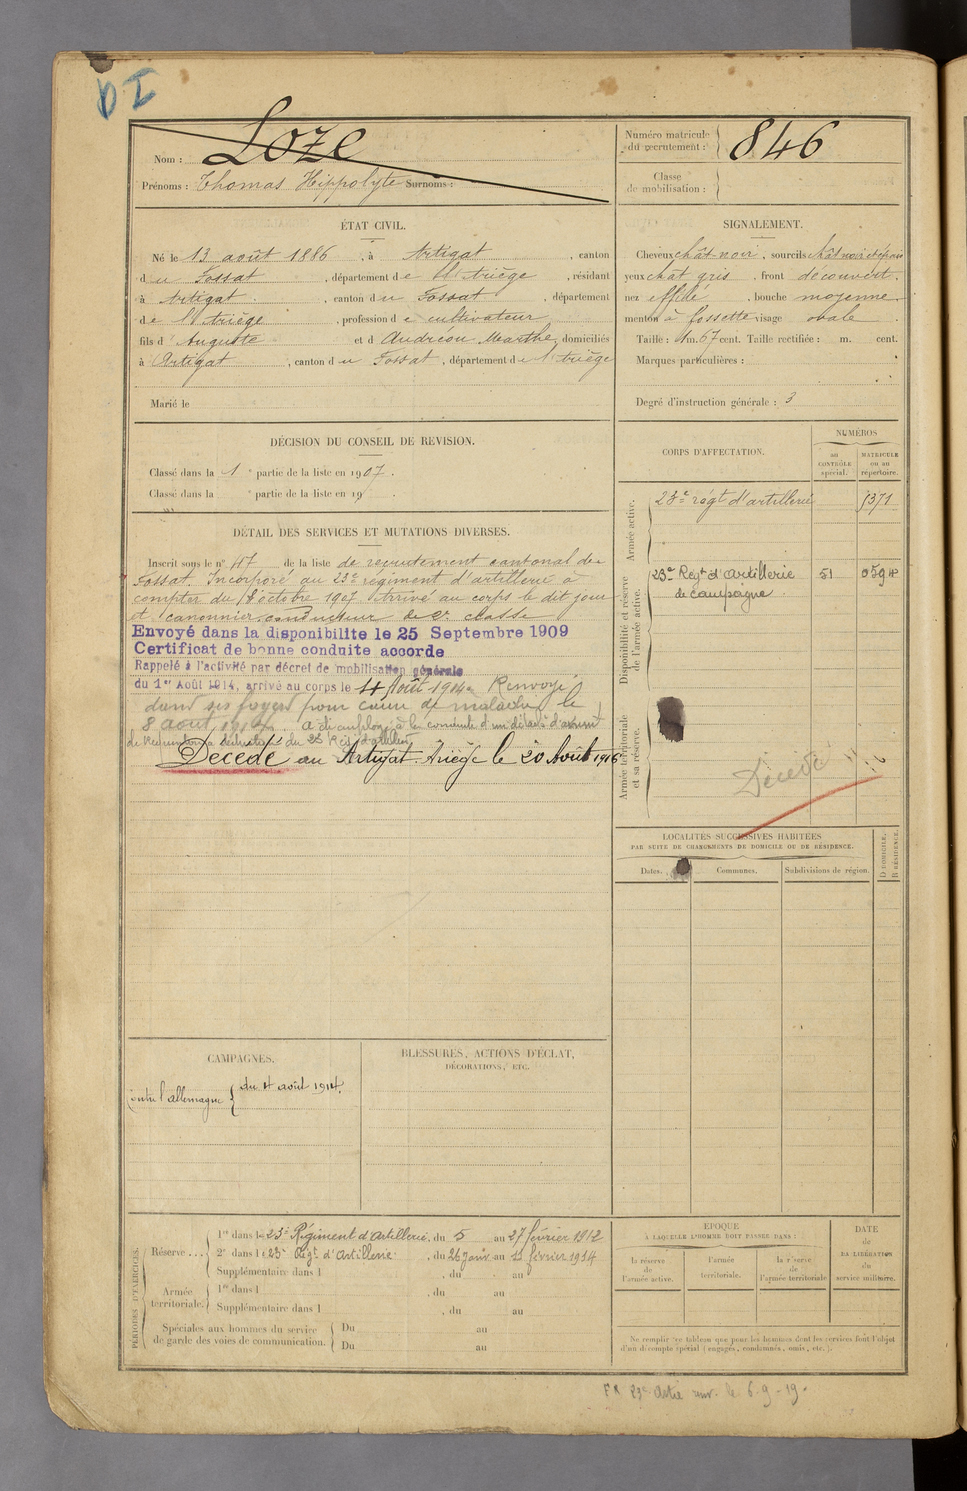 Nom : Loze
Prénoms : Thomas Hippolyte Surnoms :
Numéro matricule du recrutement : 846
Classe de mobilisation :
ÉTAT CIVIL.
Né le 13 août 1886, à Artigat, canton
du Fossat, département de l'Ariège, résidant
à Artigat, canton du Fossat, département
de l'Ariège, profession de cultivateur
fils d'Auguste et d Andréou Marthe, domiciliés
à Artigat, canton du Fossat, département de l'Ariège
Marié le
SIGNALEMENT.
Cheveux chât noir, sourcils chât noir
yeux chât gris, front découvert.
nez effilé, bouche moyenne
menton à fossette visage ovale
Taille : 1 m. 67 cent. Taille rectifiée : m. cent.
Marques particulières :
Degré d'instruction générale : 3
DÉCISION DU CONSEIL DE REVISION.
Classé dans la 1e partie de la liste en 1907.
Classé dans la e partie de la liste en 19
DÉTAIL DES SERVICES ET MUTATIONS DIVERSES.
Inscrit sous le n° 47 de la liste de recrutement cantonal de
Fossat. Incorporé au 23e régiment d'artillerie à
compter du 8 octobre 1907. Arrivé au corps le dit jour
et canonnier conducteur de 2e classe
Envoyé dans la disponibilite le 25 Septembre 1909
Certificat de bonne conduite accorde
Rappelé à l'activité par décret de mobilisation générale
du 1er Août 1914, arrivé au corps le 4 Août 1914. Renvoyé
dans ses foyers pour cause de maladie le
8 août 1914. A di
Décédé au Artigat Ariège le 20 Août 1916
CORPS D'AFFECTATION.
NUMÉROS
au CONTRÔLE spécial.
MATRICULE ou au répertoire.
Armée active.
23e régt d'artillerie 5371
Disponibilité et réserve de l'armée active.
23e Régt d'Artillerie 51 0594
de campagne.
Armée territoriale et sa réserve.
Décédé
LOCALITÉS SUCCESSIVES HABITÉES
PAR SUITE DE CHANGEMENTS DE DOMICILE OU DE RÉSIDENCE.
Dates. Communes. Subdivisions de région. D DOMICILE. R RÉSIDENCE.
CAMPAGNES.
Contre l'Allemagne { du 4 août 1914.
BLESSURES, ACTIONS D'ÉCLAT,
DÉCORATIONS, ETC.
PÉRIODES D'EXERCICES.
Réserve...
1re dans le 23e Régiment d'Artillerie, du 5 au 27 février 1912
2e dans le 23e Régt d'Artillerie, du 26 janv au 11 février 1914
Supplémentaire dans l , du au
Armée territoriale.
1re dans l , du au
Supplémentaire dans l , du au
Spéciales aux hommes du service
de garde des voies de communication.
Du au
Du au
EPOQUE
À LAQUELLE L'HOMME DOIT PASSER DANS :
la réserve de l'armée active.
l'armée territoriale.
la réserve de l'armée territoriale
DATE
de
LA LIBÉRATION
du
service militaire.
Ne remplir ce tableau que pour les hommes dont les services font l'objet
d'un décompte spécial (engagés, condamnés, omis, etc.).
23e Artie le 6-9-19.